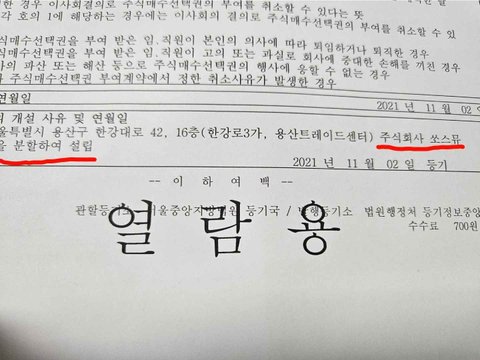 한 경우 이사회결의로 주식매수선택권의 부여를 취소할 수 있다는 뜻
각 호의 1에 해당하는 경우에는 이사회의 결의로 주식매수선택권의 부여를 취소할 수 있
식매수선택권을 부여 받은 임.직원이 본인의 의사에 따라 퇴임하거나 퇴직한 경우
식매수선택권을 부여 받은 임.직원이 고의 또는 과실로 회사에 중대한 손해를 끼친 경우
사의 파산 또는 해산 등으로 주식매수선택권의 행사에 응할 수 없는 경우
주식매수선택권 부여계약에서 정한 취소사유가 발생한 경우
연월일
2021 년 11 월 02 일
개설 사유 및 연월일
울특별시 용산구 한강대로 42, 16층(한강로3가, 용산트레이드센터) 주식회사 쏘스뮤
을 분할하여 설립
2021 년 11 월 02 일 등기
― 이 하 여 백 ―
관할등기소 서울중앙지방법원 등기국 / 발행등기소 법원행정처 등기정보중앙
수수료 700원
열 람 용